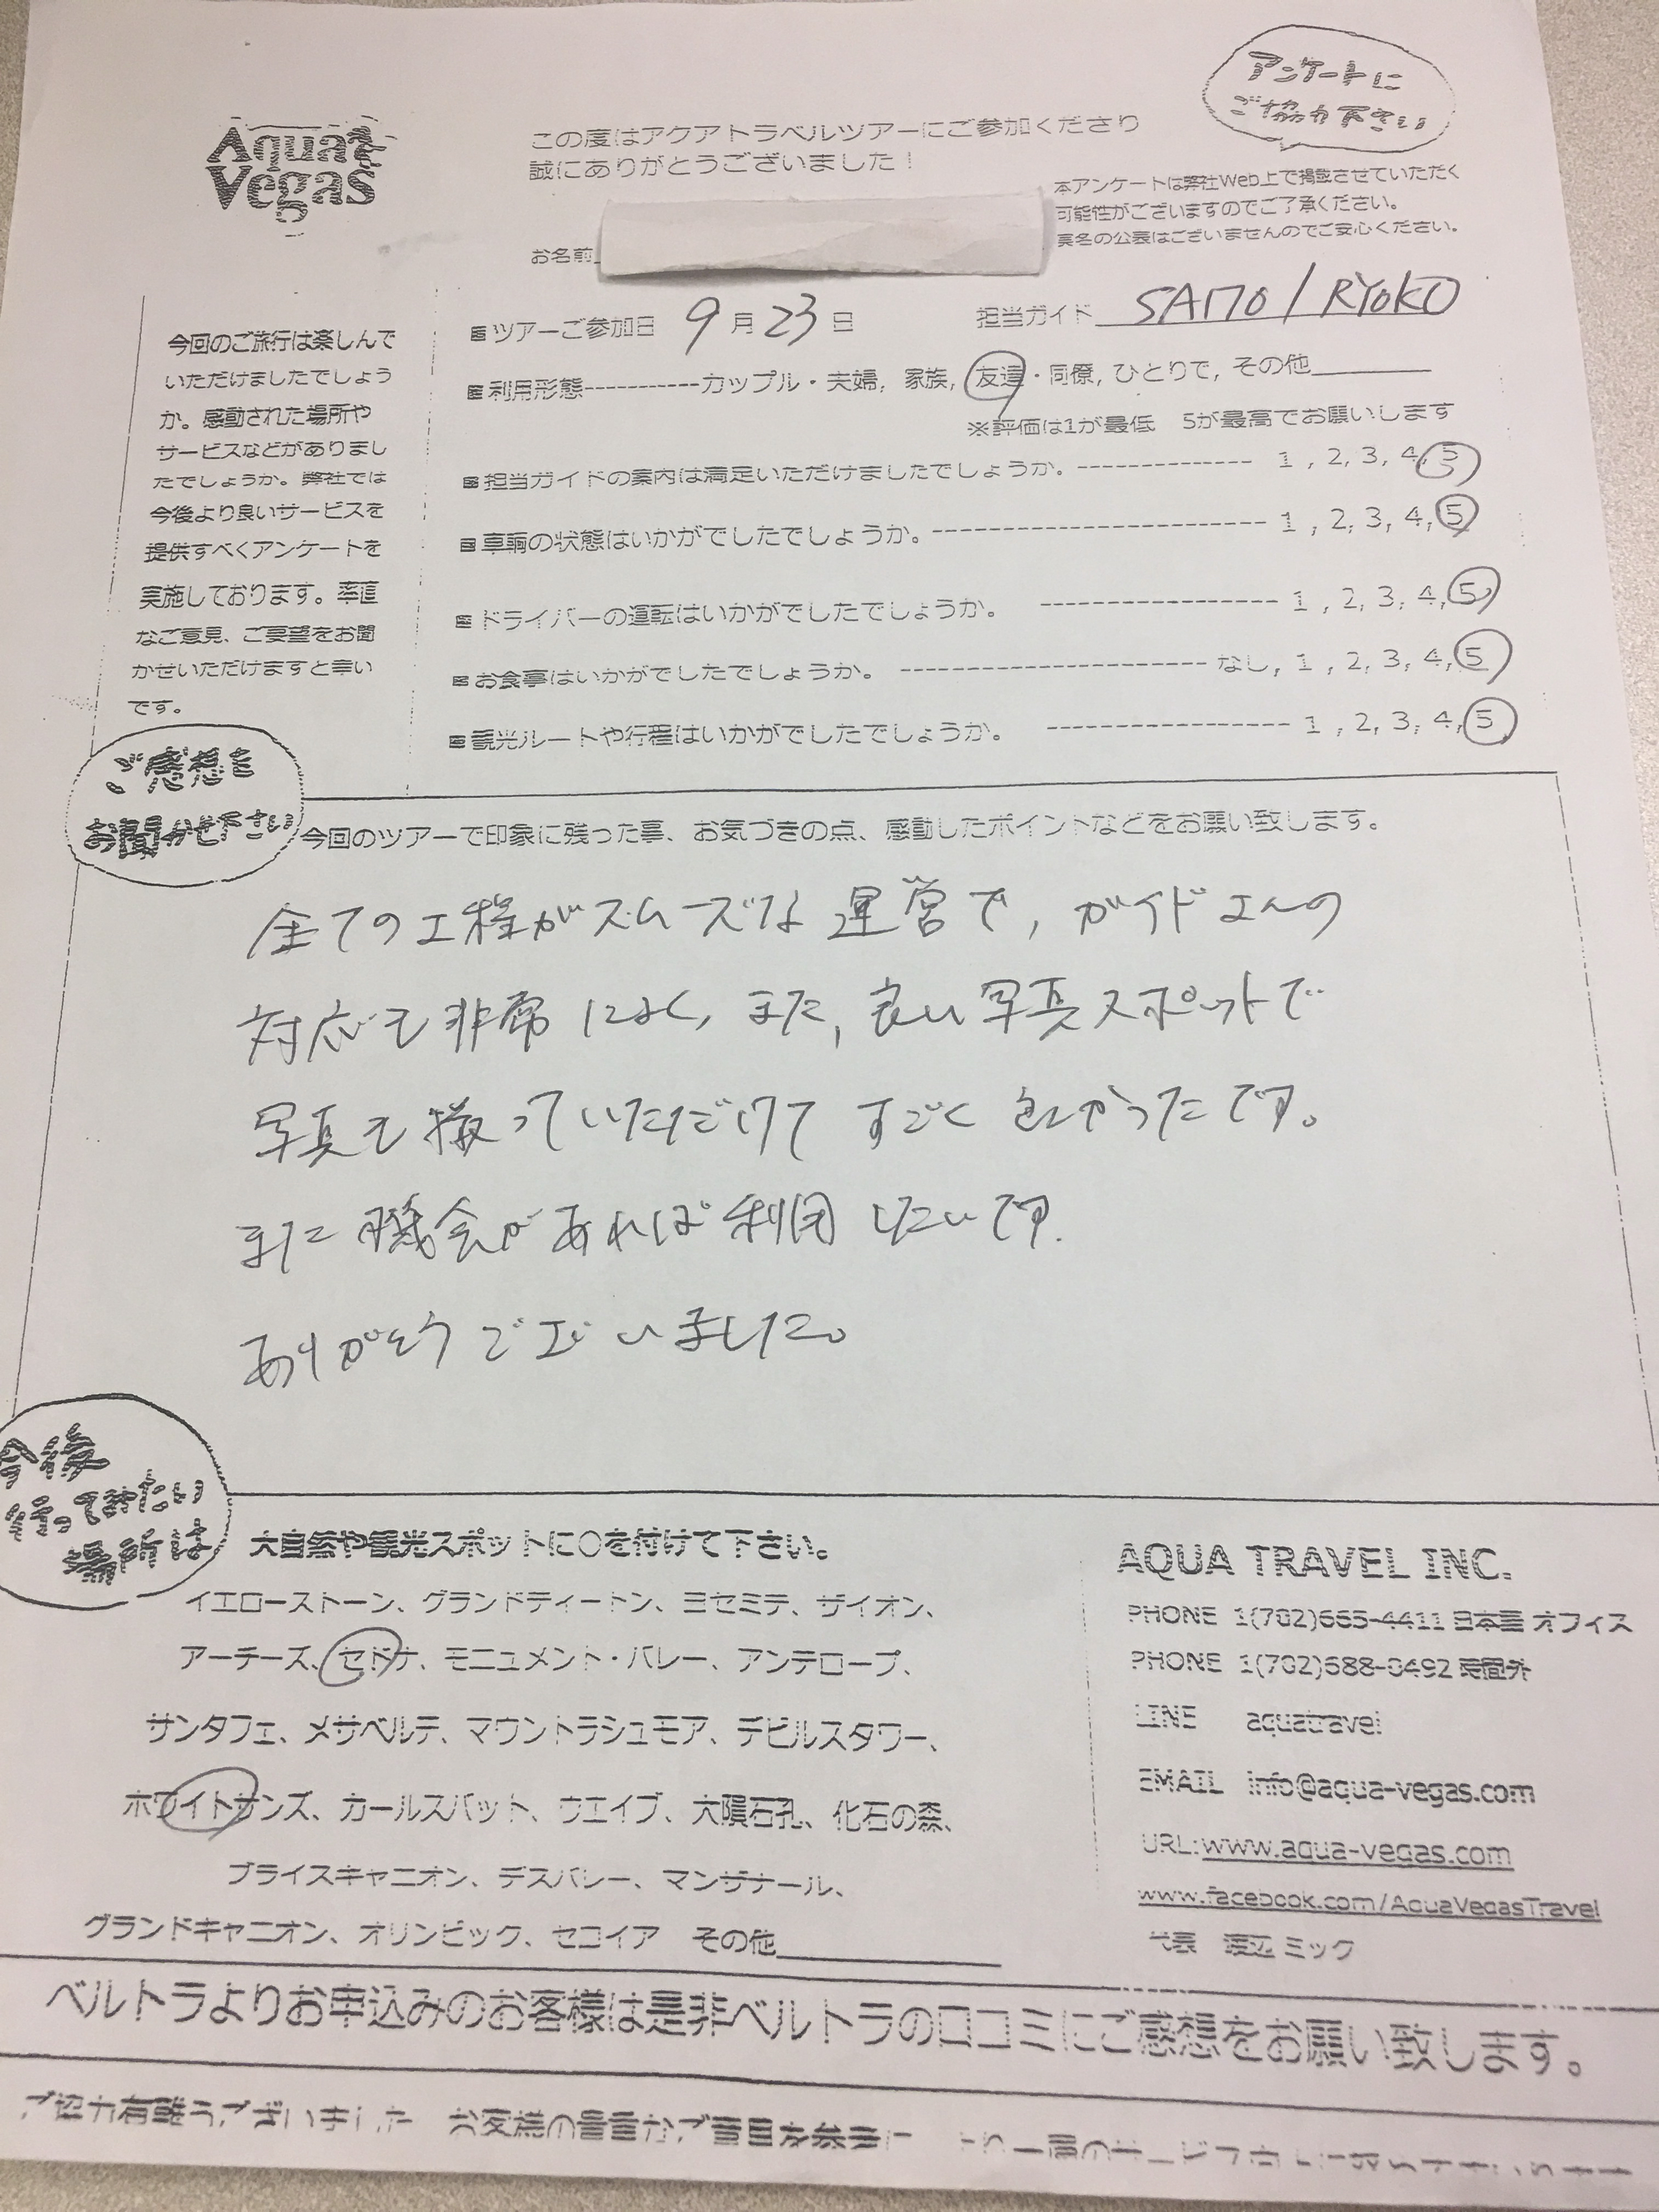 アンケートに
ご協力下さい
Aqua
Vegas
この度はアクアトラベルツアーにご参加くださり
誠にありがとうございました！
本アンケートは弊社Web上で掲載させていただく
可能性がございますのでご了承ください。
実名の公表はございませんのでご安心ください。
お名前
今回のご旅行は楽しんで
いただけましたでしょう
か。感動された場所や
サービスなどがありまし
たでしょうか。弊社では
今後より良いサービスを
提供すべくアンケートを
実施しております。率直
なご意見、ご要望をお聞
かせいただけますと幸い
です。
■ツアーご参加日 9月23日 担当ガイド SAITO / RYOKO
■利用形態-----------カップル・夫婦, 家族, 友達・同僚, ひとりで, その他
※評価は1が最低 5が最高でお願いします
■担当ガイドの案内は満足いただけましたでしょうか。------------- 1 , 2, 3, 4, 5
■車輌の状態はいかがでしたでしょうか。------------------------- 1 , 2, 3, 4, 5
■ドライバーの運転はいかがでしたでしょうか。 ----------------- 1 , 2, 3, 4, 5
■お食事はいかがでしたでしょうか。 ---------------------- なし, 1 , 2, 3, 4, 5
■観光ルートや行程はいかがでしたでしょうか。 ----------------- 1 , 2, 3, 4, 5
ご感想を
お聞かせ下さい
今回のツアーで印象に残った事、お気づきの点、感動したポイントなどをお願い致します。
全ての工程がスムーズな運営で, ガイドさんの
対応も非常によく, また, 良い写真スポットで
写真も撮っていただけて すごく良かったです。
また機会があれば利用したいです.
ありがとうございました。
今後
行ってみたい
場所は
大自然や観光スポットに○を付けて下さい。
イエローストーン、グランドティートン、ヨセミテ、ザイオン、
アーチーズ、セドナ、モニュメント・バレー、アンテロープ、
サンタフェ、メサベルデ、マウントラシュモア、デビルスタワー、
ホワイトサンズ、カールスバット、ウエイブ、大隕石孔、化石の森、
ブライスキャニオン、デスバレー、マンザナール、
グランドキャニオン、オリンピック、セコイア その他
AQUA TRAVEL INC.
PHONE 1(702)665-4411 日本語 オフィス
PHONE 1(702)688-0492 時間外
LINE aquatravel
EMAIL info@aqua-vegas.com
URL:www.aqua-vegas.com
www.facebook.com/AquaVegasTravel
代表 渡辺 ミック
ベルトラよりお申込みのお客様は是非ベルトラの口コミにご感想をお願い致します。
ご協力有難うございました お客様の貴重なご意見を参考に